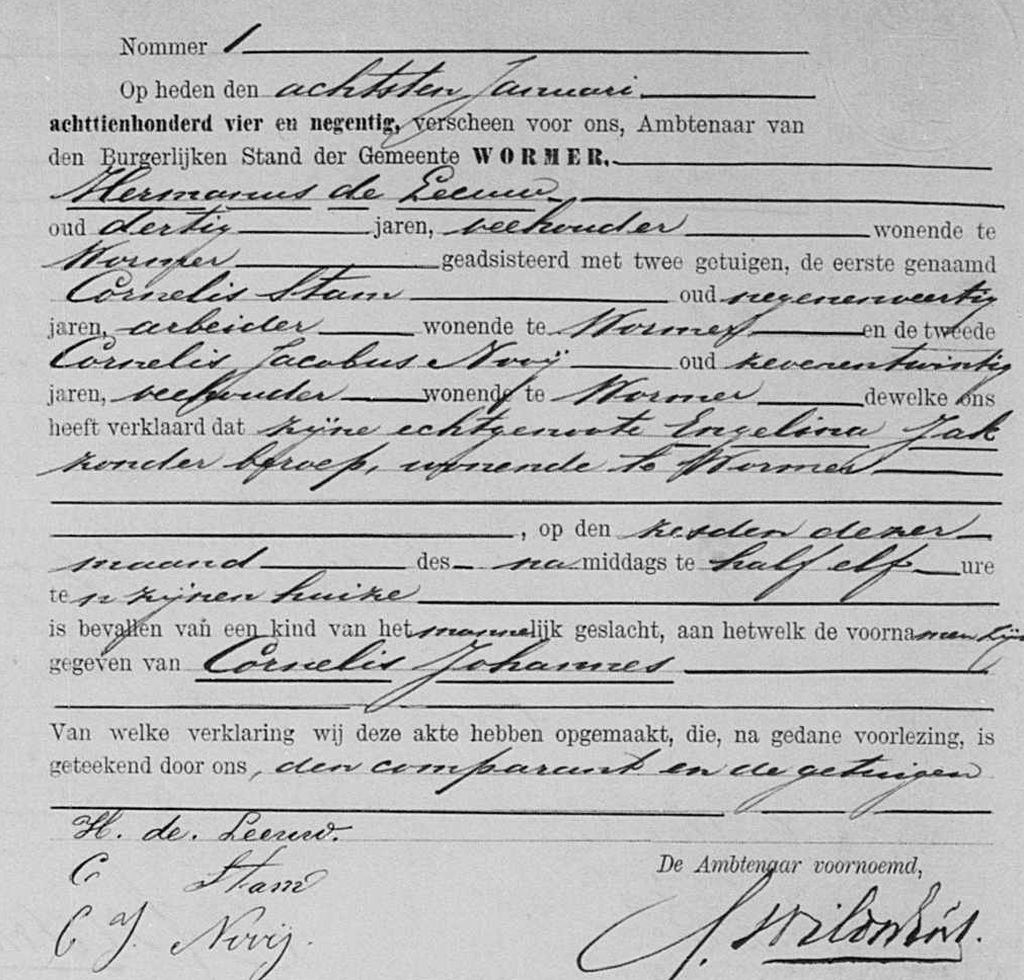 Nommer 1
Op heden den achtsten Januari
achttienhonderd vier en negentig, verscheen voor ons, Ambtenaar van
den Burgerlijken Stand der Gemeente WORMER,
Hermanus de Leeuw
oud dertig jaren, veehouder wonende te
Wormer geadsisteerd met twee getuigen, de eerste genaamd
Cornelis Stam oud negenenveertig
jaren, arbeider wonende te Wormer en de tweede
Cornelis Jacobus Nooij oud zevenentwintig
jaren, veehouder wonende te Wormer dewelke ons
heeft verklaard dat zijne echtgenoote Engelina Jak
zonder beroep, wonende te Wormer
, op den zesden dezer
maand des na middags te half elf ure
te n zijnen huize
is bevallen van een kind van het mannelijk geslacht, aan hetwelk de voornamen zijn
gegeven van Cornelis Johannes
Van welke verklaring wij deze akte hebben opgemaakt, die, na gedane voorlezing, is
geteekend door ons, den comparant en de getuigen
H. de. Leeuw.
C Stam
De Ambtenaar voornoemd,
C J. Nooij.